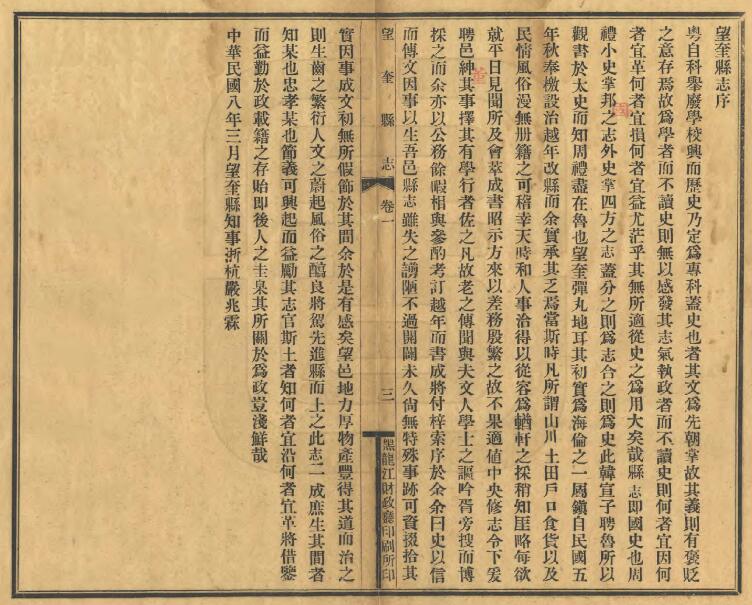 望奎縣志序
粵自科舉廢學校興而歷史乃定爲專科蓋史也者其文爲先朝掌故其義則有褒貶
之意存焉故爲學者而不讀史則無以感發其志氣執政者而不讀史則何者宜因何
者宜革何者宜損何者宜益尤茫乎其無所適從史之爲用大矣哉縣志即國史也周
禮小史掌邦之志外史掌四方之志蓋分之則爲志合之則爲史此韓宣子聘魯所以
觀書於太史而知周禮盡在魯也望奎彈丸地耳其初實爲海倫之一鄉鎮自民國五
年秋奉檄設治越年改縣而余實承其乏焉當斯時凡所謂山川土田戶口食貨以及
民情風俗漫無册籍之可稽幸天時和人事洽得以從容爲輶軒之採稍知匡略每欲
就平日見聞所及會萃成書昭示方來以差務殷繁之故不果適値中央修志令下爰
聘邑紳其事擇其有學行者佐之凡故老之傳聞與夫文人學士之謳吟胥旁搜而博
採之而余亦以公務餘暇相與參酌考訂越年而書成將付梓索序於余余曰史以信
而傳文因事以生吾邑縣志雖失之謭陋不過開闢未久尙無特殊事跡可資掇拾其
望奎縣志
卷一
三
黑龍江財政廳印刷所印
實因事成文初無所假飾於其間余於是有感矣望邑地力厚物產豐得其道而治之
則生齒之繁衍人文之蔚起風俗之醕良將駕先進縣而上之此志一成庶生其間者
知某也忠孝某也節義可興起而益勵其志官斯土者知何者宜沿何者宜革將借鑒
而益勤於政載籍之存貽即後人之圭臬其所關於爲政豈淺鮮哉
中華民國八年三月望奎縣知事浙杭嚴兆霖